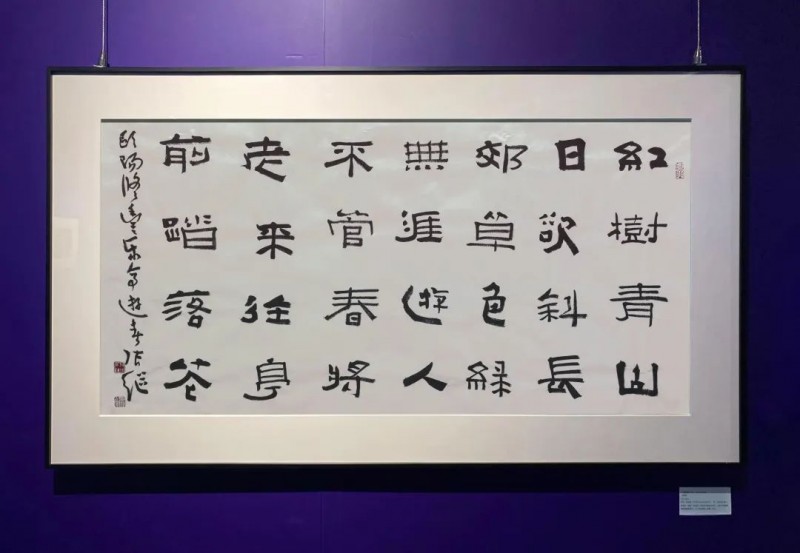 紅樹青山
日欲斜長
郊草色綠
無涯遊人
不管春將
老來往亭
前蹈落花
歐陽修豐樂亭遊春 張繼